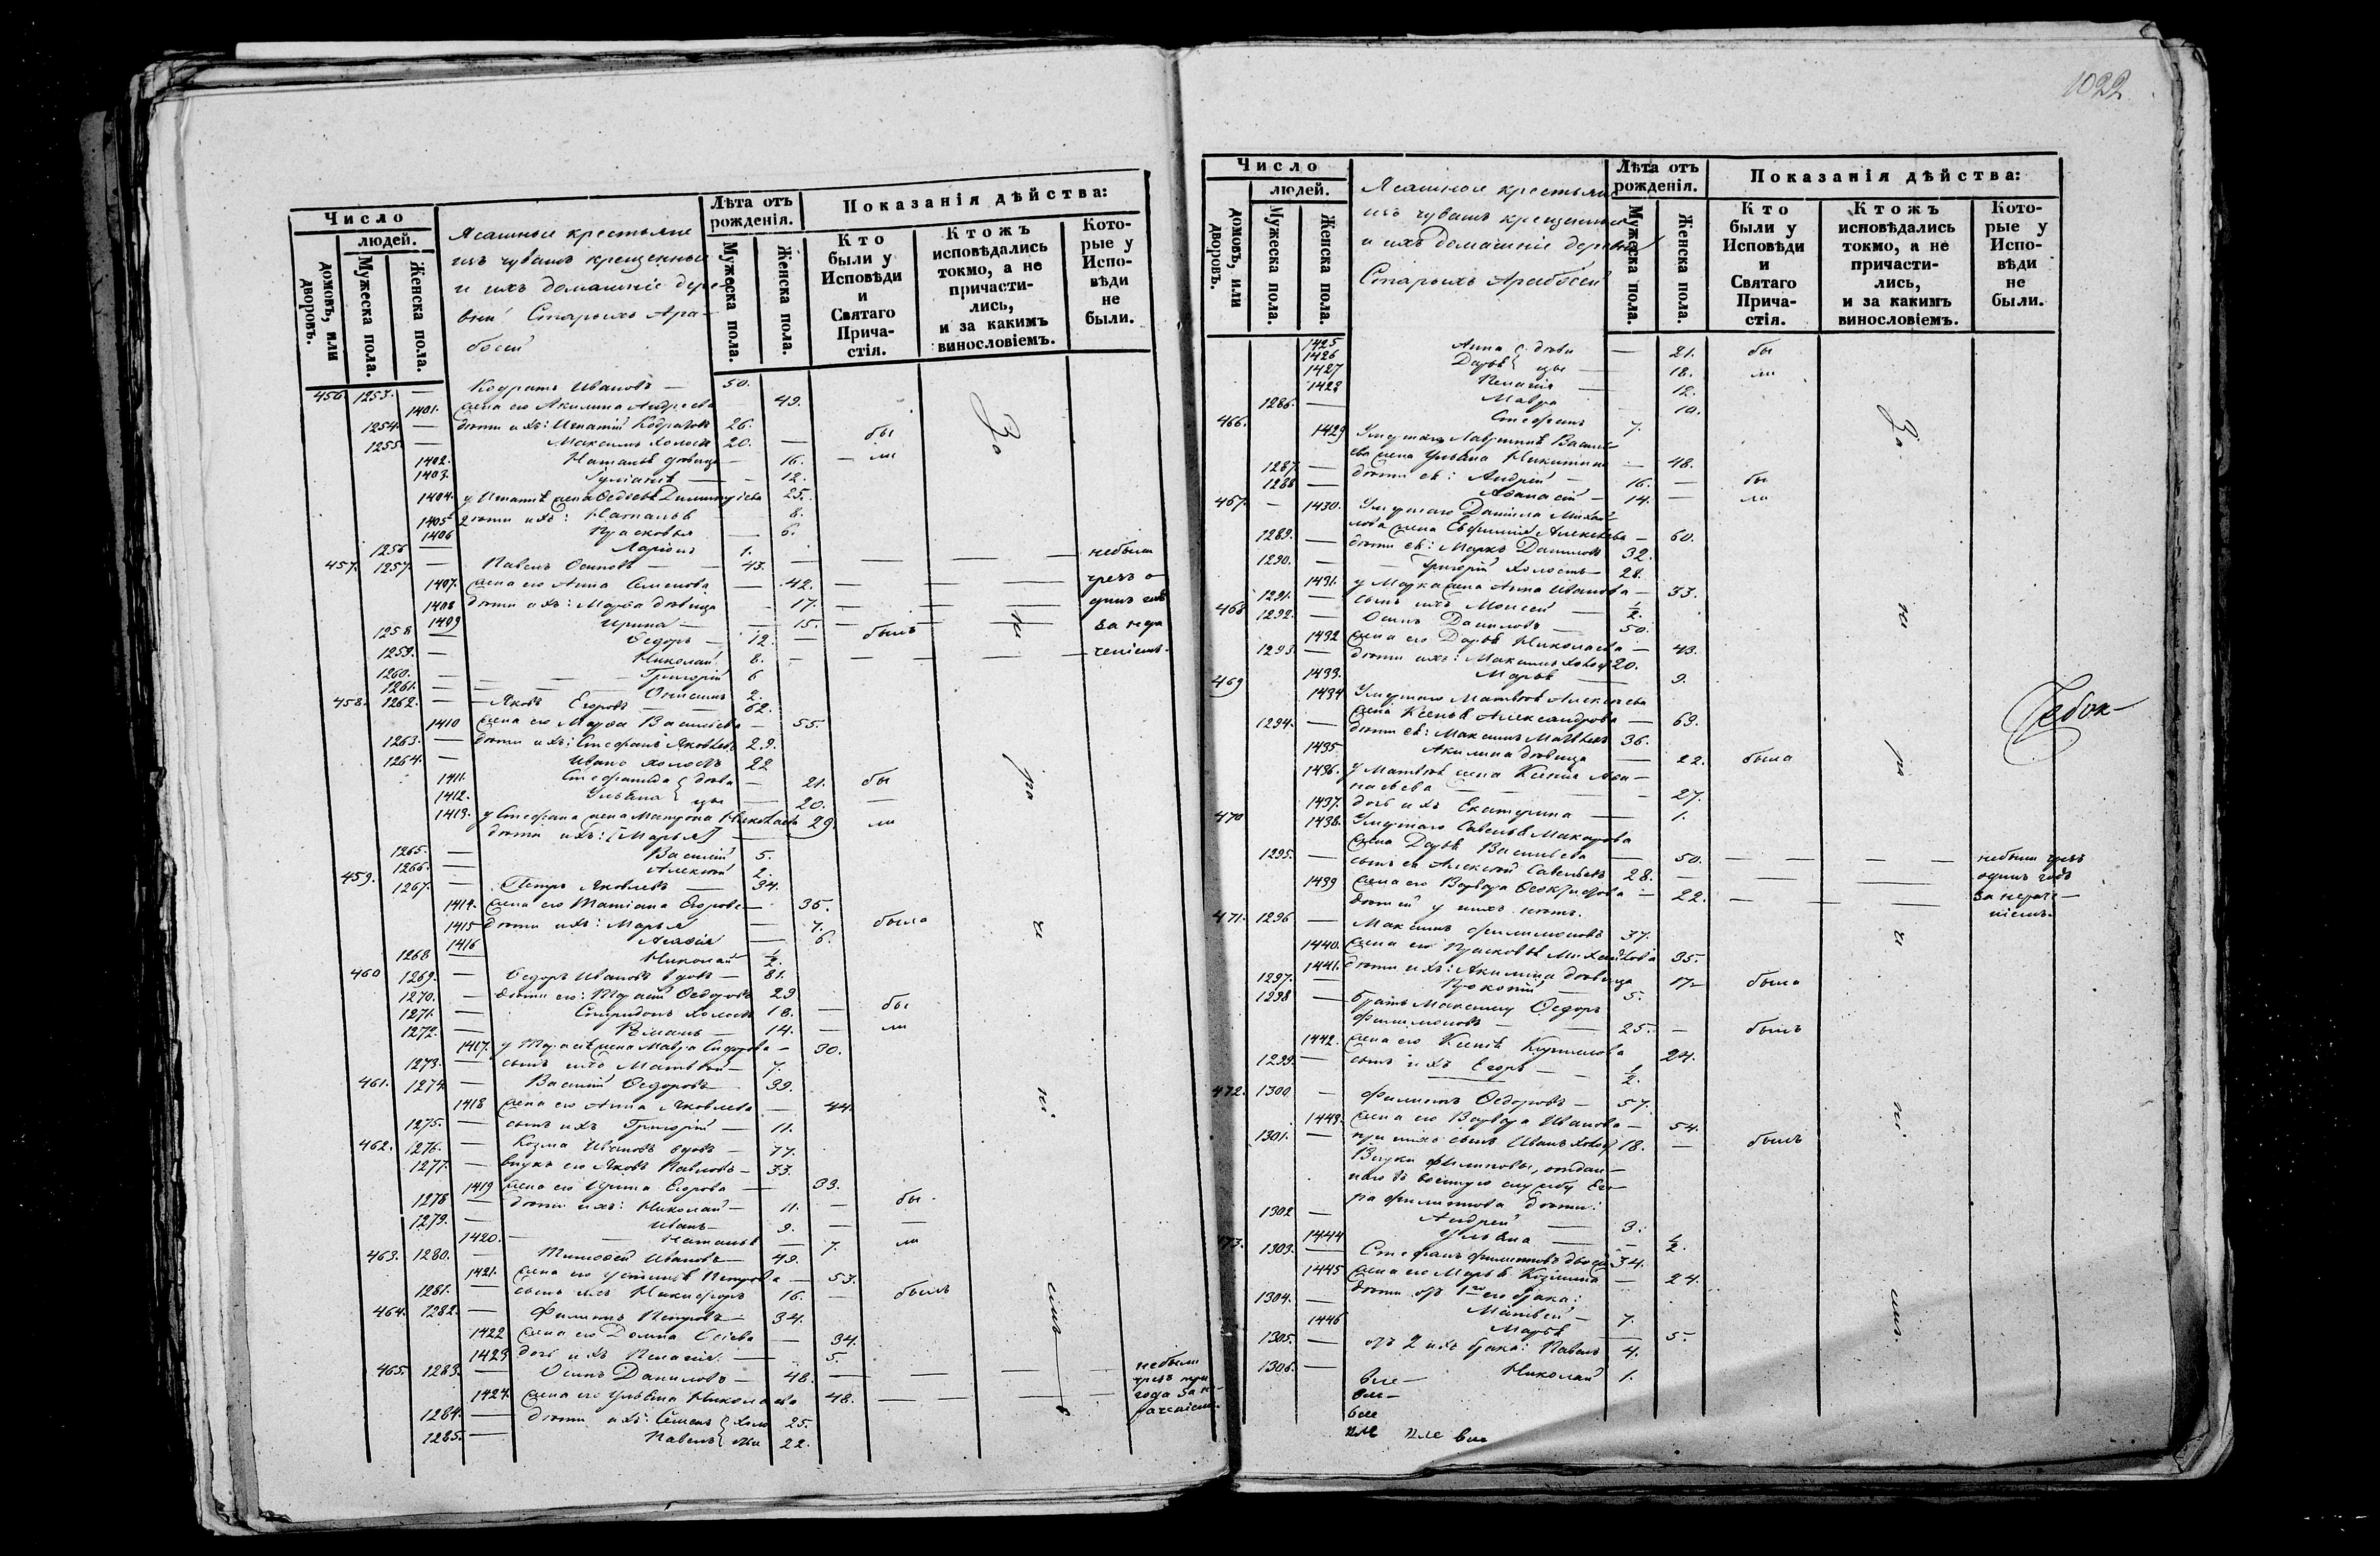 1022
Число
людей.
домовъ, или дворовъ.
Мужеска пола.
Женска пола.
Ясашные крестьяне
изъ чувашъ крещенные
и ихъ домашніе дере-
вни Старыхъ Ара-
босей
Лѣта отъ рожденія.
Мужеска пола.
Женска пола.
Показанія дѣйства:
Кто были у Исповѣди и Святаго Прича- стія.
Ктожъ исповѣдались токмо, а не причасти- лись, и за какимъ винословіемъ.
Кото- рые у Испо- вѣди не были.
456. 1253. — Кодратъ Ивановъ — 50.
1401. жена его Акилина Андреева 49.
1254. — дѣти ихъ: Игнатій Кодратовъ 26.
1255. — Максимъ холостъ 20. — бы
1402. Наталья дѣвица — 16. — ли
1403. — 12.
1404. у Игнатія жена Федосья 25.
1405 дѣти ихъ: Наталья 8.
1406 Прасковья — 6.
1256 — Ларіонъ 1.
457. 1257. — Павелъ Осиповъ — 43. — небыли
1407. жена его Анна Семенова — 42. — чрезъ о-
1408 дѣти ихъ: Марѳа дѣвица — 17. — динъ годъ
1409 Ирина — 15. — за нера
1258 — Ѳедоръ — 12. — былъ
1259. — Николай 8. — ченіемъ.
1260. — Григорій 6
1261. — Онисимъ 2.
458. 1262. — Яковъ Егоровъ — 62.
1410 жена его Марѳа Васильева — 55.
1263. — дѣти ихъ: Стефанъ Яковлевъ 29.
1264. — Иванъ холостъ 22
1411. Стефанида дѣви — 21. бы
1412. Ульяна цы — 20. —
1413. у Стефана жена Матрона Николаева 29. ли
дѣти ихъ: [Марья]
1265. — Василій 5.
1266. — Алексѣй 2.
459. 1267. — Петръ Яковлевъ — 34.
1414. жена его Татіана Егорова — 35.
1415 дѣти ихъ: Марья — 7. была
1416 — 6.
1268 — Николай ½.
460 1269. — Ѳедоръ Ивановъ вдовъ — 81.
1270. — дѣти его: Тарасій Ѳедоровъ 29 бы
1271. — Спиридонъ холостъ 18. —
1272. — Романъ — 14. — ли
1417. у Тарасія жена Мавра Сидорова — 30.
1273. — сынъ ихъ Матвѣй — 7.
461. 1274 — Василій Ѳедоровъ 39.
1418 жена его Анна Яковлева — 44.
1275. — сынъ ихъ Григорій — 11.
462. 1276. — Козма Ивановъ вдовъ — 77.
1277. — внукъ его Яковъ Павловъ — 33.
1419 жена его Ирина Егорова — 33.
1278 — дѣти ихъ: Николай — 11. — бы
1279. — Иванъ — 9. —
1420. — Наталья — 7. ли
463. 1280. — Тимоѳей Ивановъ — 49.
1421. жена его Устинья Петрова — 53.
1281. — сынъ ихъ Никифоръ 16. — былъ
464. 1282. — Филиппъ Петровъ 34.
1422 жена его Домна Осіева — 34.
1423 дочь ихъ Пелагія — 5.
465. 1283. — Осипъ Даниловъ — 48. — небыли
1424. жена его Ульяна Николаева 48. — чрезъ три
1284. — дѣти ихъ: Семенъ холо 25. года за не-
1285. — Павелъ сты 22. раченіемъ.
За
не
ра
че
ні
емъ
Число
людей.
домовъ, или дворовъ.
Мужеска пола.
Женска пола.
Ясашные крестьяне
изъ чувашъ крещенные
и ихъ домашніе деревни
Старыхъ Арабосей
Лѣта отъ рожденія.
Мужеска пола.
Женска пола.
Показанія дѣйства:
Кто были у Исповѣди и Святаго Прича- стія.
Ктожъ исповѣдались токмо, а не причасти- лись, и за какимъ винословіемъ.
Кото- рые у Испо- вѣди не были.
1425 Анна дѣви — 21. бы
1426 Дарья цы — 18. ли
1427 Пелагія — 12.
1428 Мавра 10.
1286. — Стефанъ 7.
466. 1429 Умершаго Лаврентія Василь
ева жена Ульяна Никитина — 48.
1287. — дѣти ея: Андрей — 16. — бы
1288 — Аѳанасій — 14. — ли
467. — 1430. Умершаго Данила Михай
лова жена Евфимія Алексѣева — 60.
1289. — дѣти ея: Марко Даниловъ 32.
1290. — Григорій холостъ — 28.
1431. у Марка жена Анна Иванова — 33.
1291. — сынъ ихъ Моисей — ½.
468 1292. — Осипъ Даниловъ — 50.
1432 жена его Дарья Николаева — 43.
1293. — дѣти ихъ: Максимъ холост 20.
1433. Марья — 9.
469 1434 Умершаго Матвѣя Алексѣева
жена Ксенья Александрова — 69.
1294. — дѣти ея: Максимъ Матвѣевъ 36.
1435. Акилина дѣвица — 22. была
1436. у жена Ксенія Аѳа-
насьева — 27.
1437. дочь ихъ Екатерина — 1.
470 1438. Умершаго Савелья Макарова
жена Дарья Васильева — 50. — небыли чрезъ
1295. — сынъ ея Алексѣй Савельевъ 28. — одинъ годъ
1439 жена его Варвара — 22. — за нераче-
дѣтей у нихъ нѣтъ. ніемъ.
471. 1296 — Максимъ Филимоновъ 37.
1440. жена его Прасковья Михайлова 35.
1441. дѣти ихъ: Акилина дѣвица 17. была
1297. — Прокопій 5.
1298 — братъ Максиму Ѳедоръ
Филимоновъ — 25. — былъ
1442. жена его Ксенія Кирилова 24.
1299. — сынъ ихъ Егоръ — ½.
472. 1300 — Филиппъ Ѳедоровъ — 57.
1443. жена его Варвара Иванова — 54.
1301. — при нихъ сынъ Иванъ холост 18. — былъ
Внуки Филиповы, отдан-
наго въ военную службу Его-
ра Филиппова дѣти:
1302 — Андрей — 3.
1444 Ульяна — ½.
473. 1303. — Стефанъ Филипповъ 34.
1445 жена его Марья Козмина — 24.
дѣти отъ 1го его брака:
1304. — Матвей — 7.
1446 Марья — 5.
1305. — отъ 2 ихъ брака: Павелъ 4.
1306. — Николай 1.
За
не
ра
че
ні
емъ.